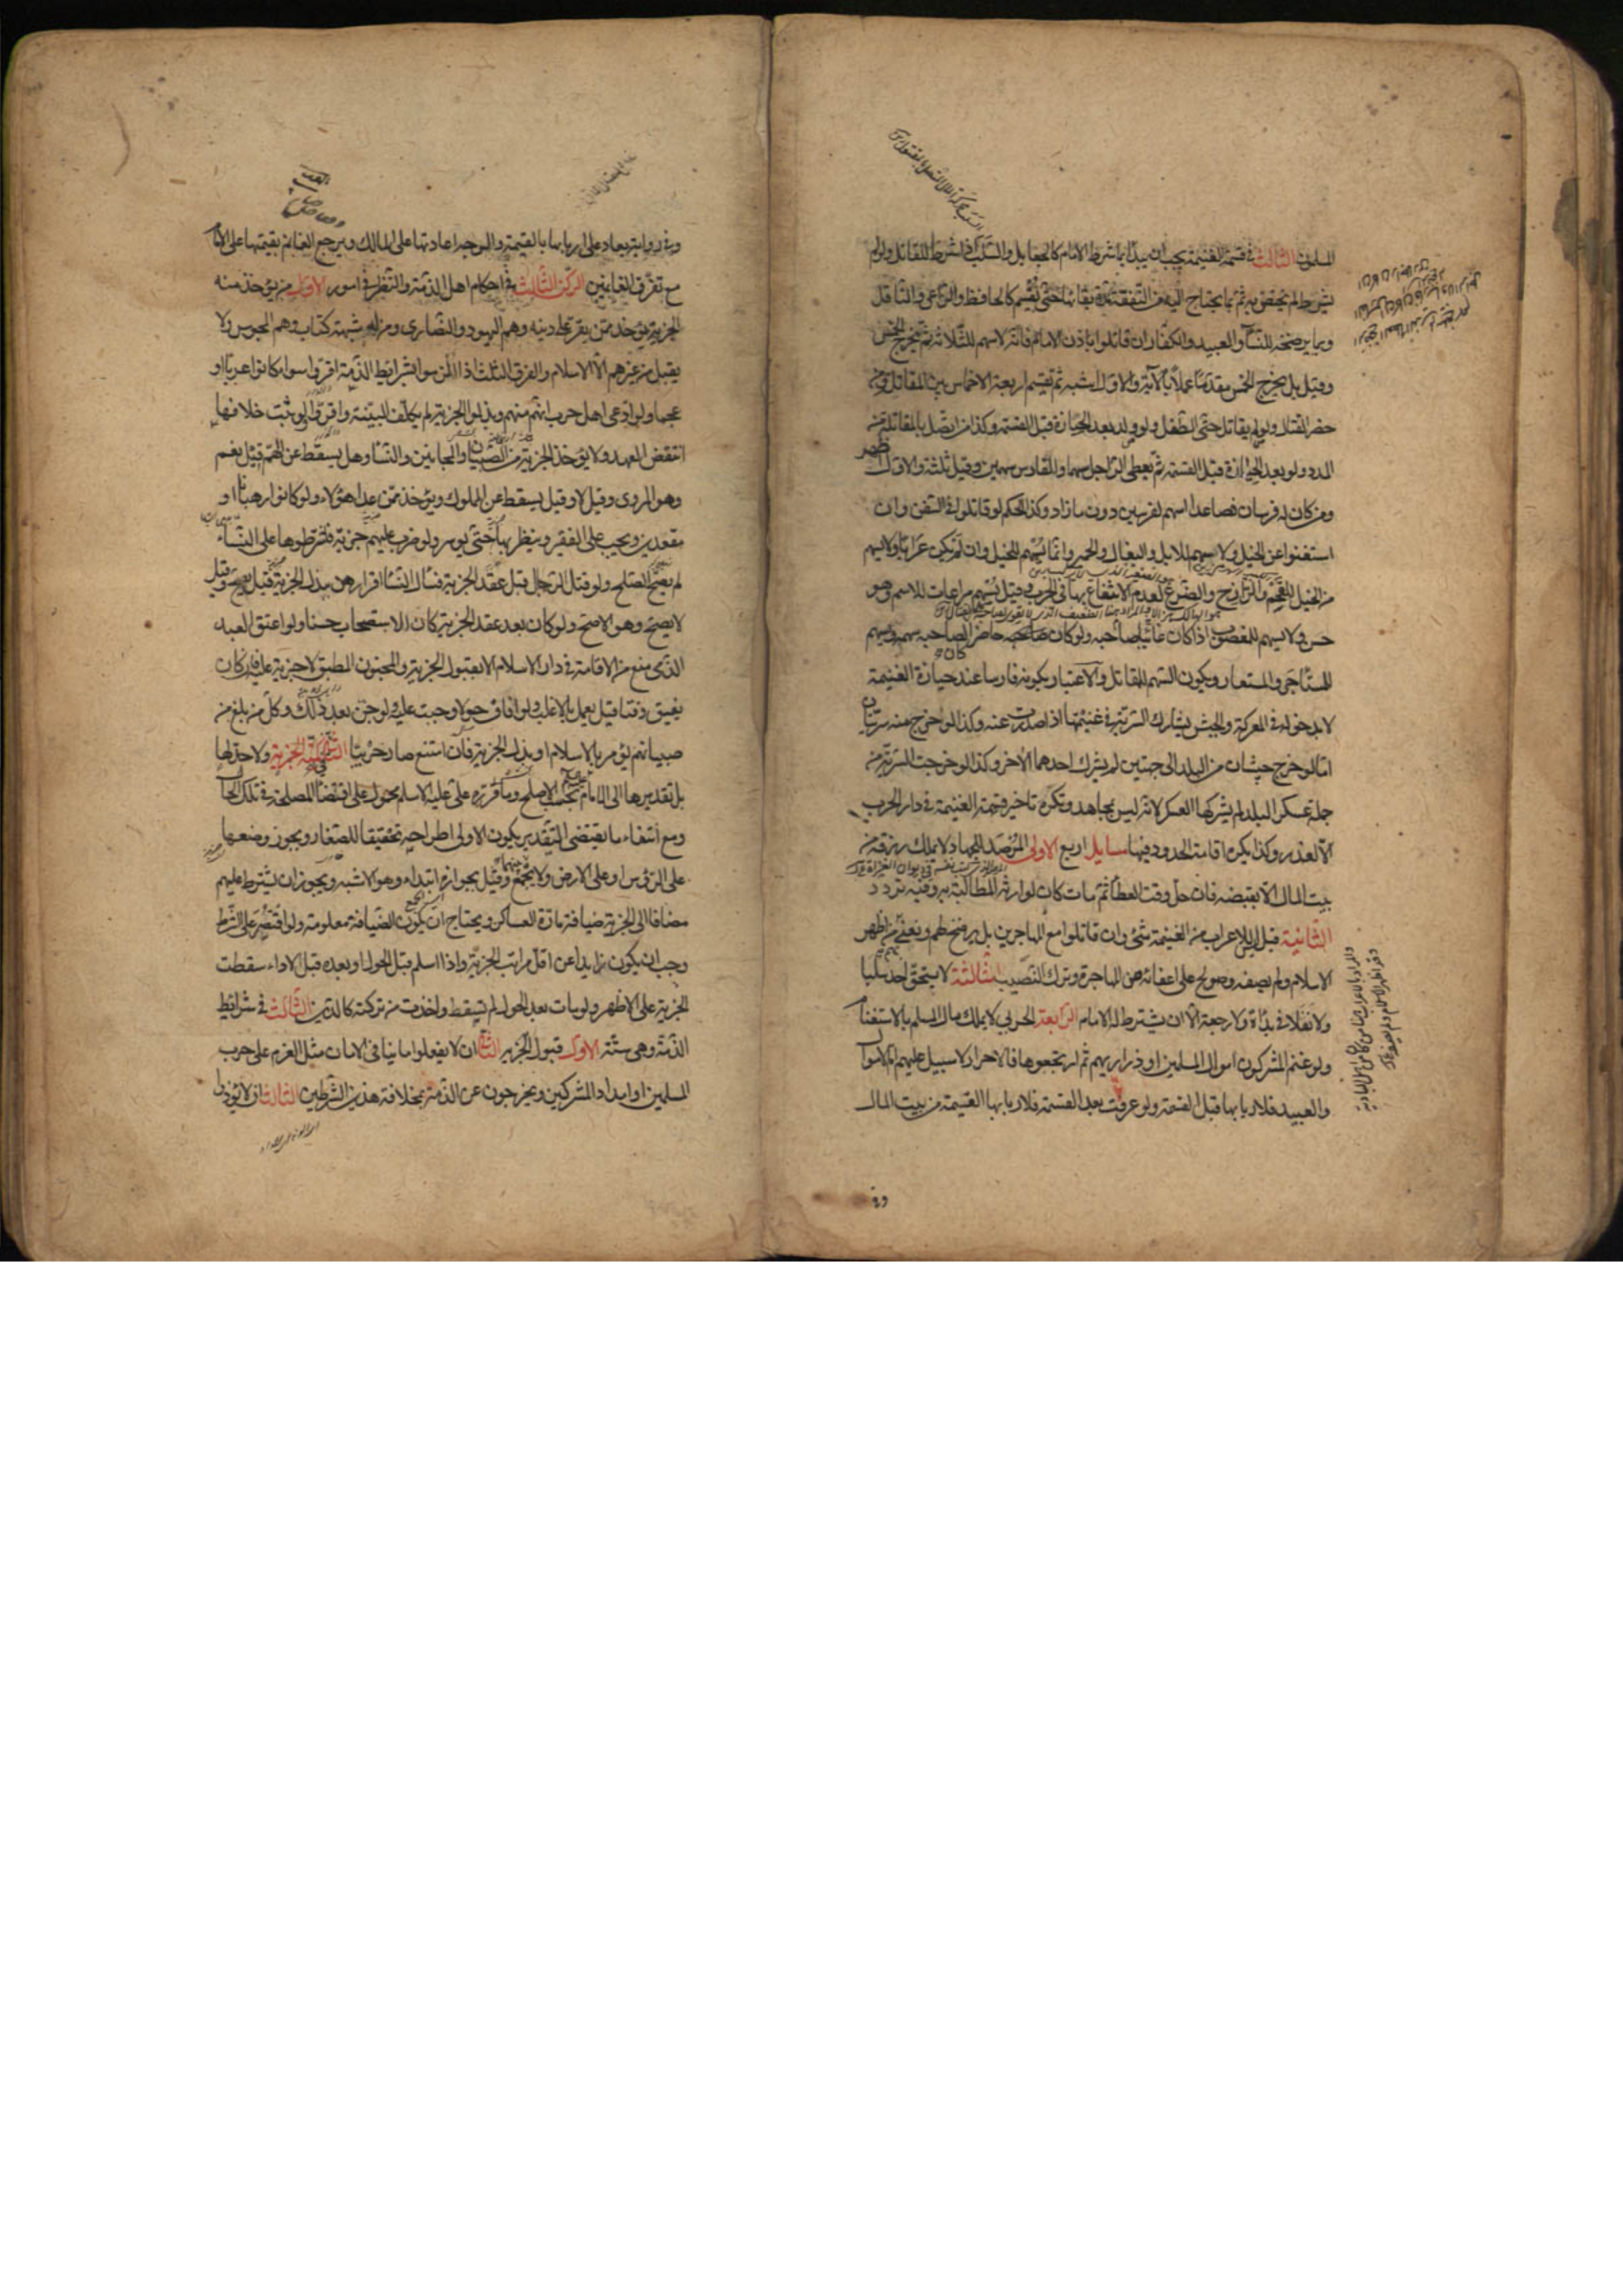 المسلمون الثالث في قسمة الغنيمة يجب ان يبدأ بما شرط الامام كالجعايل والسلب اذا شرط للقاتل ولو لم
يشرط لم يختص به ثم بما يحتاج اليه من النفقة مدة بقائها حتى تقسم كالحافظ والراعي والناقل
وبما يرضخه للنساء والعبيد والكفار ان قاتلوا باذن الامام فانه لا سهم للثلاثة ثم يخرج الخمس
وقيل بل يخرج الخمس مقدما عملا بالآية والاول اشبه ثم تقسم اربعة الاخماس بين المقاتلة ومن
حضر القتال ولو لم يقاتل حتى الطفل ولو ولد بعد الحيازة قبل القسمة وكذا من اتصل بالمقاتلة من
المدد ولو بعد الحيازة قبل القسمة ثم يعطى الراجل سهما والفارس سهمين وقيل ثلثة والاول اظهر
ومن كان له فرسان فصاعدا اسهم لفرسين دون ما زاد وكذا الحكم لو قاتلوا في السفن وان
استغنوا عن الخيل ولا يسهم للابل والبغال والحمير وانما يسهم للخيل وان لم يكن عرابا ولا يسهم
من الخيل للقحم والرازح والضرع لعدم الانتفاع بها في الحرب وقيل يسهم مراعات للاسم وهو
حسن ولا يسهم للمغصوب اذا كان غائبا صاحبه ولو كان صاحبه حاضرا كان لصاحبه سهمه ويسهم
للمستأجر والمستعار ويكون السهم للمقاتل والاعتبار بكونه فارسا عند حيازة الغنيمة
لا بدخوله في المعركة والجيش يشارك السرية في غنيمتها اذا صدرت عنه وكذا لو خرج منه سريتان
اما لو خرج جيشان من البلد الى جهتين لم يشرك احدهما الآخر وكذا لو خرجت السرية من
جملة عسكر البلد لم يشركها العسكر لانه ليس بمجاهد وتكره تاخير قسمة الغنيمة في دار الحرب
الا لعذر وكذا يكره اقامة الحدود فيها مسايل اربع الاولى المرصد للجهاد لا يملك رزقه من
بيت المال الا بقبضه فان حل وقت العطاء ثم مات كان لوارثه المطالبة به وفيه تردد
الثانية قيل ليس للاعراب من الغنيمة شئ وان قاتلوا مع المهاجرين بل يرضخ لهم ونعني بهم من اظهر
الاسلام ولم يصفه وصولح على اعفائه عن المهاجرة وترك النصيب الثالثة لا يستحق احد سلبا
ولا نفلا في بدأة ولا رجعة الا ان يشترط له الامام الرابعة الحربي لا يملك مال المسلم بالاستغنام
ولو غنم المشركون اموال المسلمين او ذراريهم ثم ارتجعوها فالاحرار لا سبيل عليهم اما الاموال
والعبيد فلاربابها قبل القسمة ولو عرفت بعد القسمة فلاربابها القيمة من بيت المال
وفي رواية يعاد على اربابها بالقيمة والوجه اعادتها على المالك ويرجع الغانم بقيمتها على الامام
مع تفرق الغانمين الركن الثالث في احكام اهل الذمة والنظر في امور الاول من يؤخذ منه
الجزية يؤخذ ممن يقر على دينه وهم اليهود والنصارى ومن لهم شبهة كتاب وهم المجوس ولا
يقبل من غيرهم الا الاسلام والفرق الثلث اذا التزموا شرايط الذمة اقروا سواء كانوا عربا او
عجما ولو ادعى اهل حرب انهم منهم وبذلوا الجزية لم يكلفوا البينة واقروا ولو ثبت خلافها
انتقض العهد ولا يؤخذ الجزية من الصبيان والمجانين والنساء وهل يسقط عن الهم قيل نعم
وهو المروى وقيل لا وقيل يسقط عن المملوك ويؤخذ ممن عدا هؤلاء ولو كانوا رهبانا او
مقعدين ويجب على الفقير وينظر بها حتى يوسر ولو ضرب عليهم جزية فاشترطوها على النساء
لم يصح الصلح ولو قتل الرجال قبل عقد الجزية فسأل النساء اقرارهن ببذل الجزية قيل يصح وقيل
لا يصح وهو الاصح ولو كان بعد عقد الجزية كان الاستصحاب حسنا ولو اعتق العبد
الذمى منع من الاقامة في دار الاسلام الا بقبول الجزية والمجنون المطبق لا جزية عليه فان كان
يفيق وقتا قيل يعمل بالاغلب ولو افاق حولا وجبت عليه ولو جن بعد ذلك وكل من بلغ من
صبيانهم يؤمر بالاسلام او بذل الجزية فان امتنع صار حربيا الثاني في كمية الجزية ولا حد لها
بل تقديرها الى الامام بحسب الاصلح وما قرره علي عليه السلام محمول على اقتضاء المصلحة في تلك الحال
ومع انتفاء ما يقتضى التقدير يكون الاولى اطراحه تحقيقا للصغار ويجوز وضعها
على الرؤس او على الارض ولا يجمع بينهما وقيل بجوازه ابتداء وهو الاشبه ويجوز ان يشترط عليهم
مضافا الى الجزية ضيافة مارة العساكر ويحتاج ان تكون الضيافة معلومة ولو اقتصر على الشرط
وجب ان يكون زايدا عن اقل مراتب الجزية واذا اسلم قبل الحول او بعده قبل الاداء سقطت
الجزية على الاظهر ولو مات بعد الحول لم تسقط واخذت من تركته كالدين الثالث في شرائط
الذمة وهي ستة الاول قبول الجزية الثاني ان لا يفعلوا ما ينافى الامان مثل العزم على حرب
المسلمين او امداد المشركين ويخرجون عن الذمة بمخالفة هذين الشرطين الثالث ان لا يؤذوا